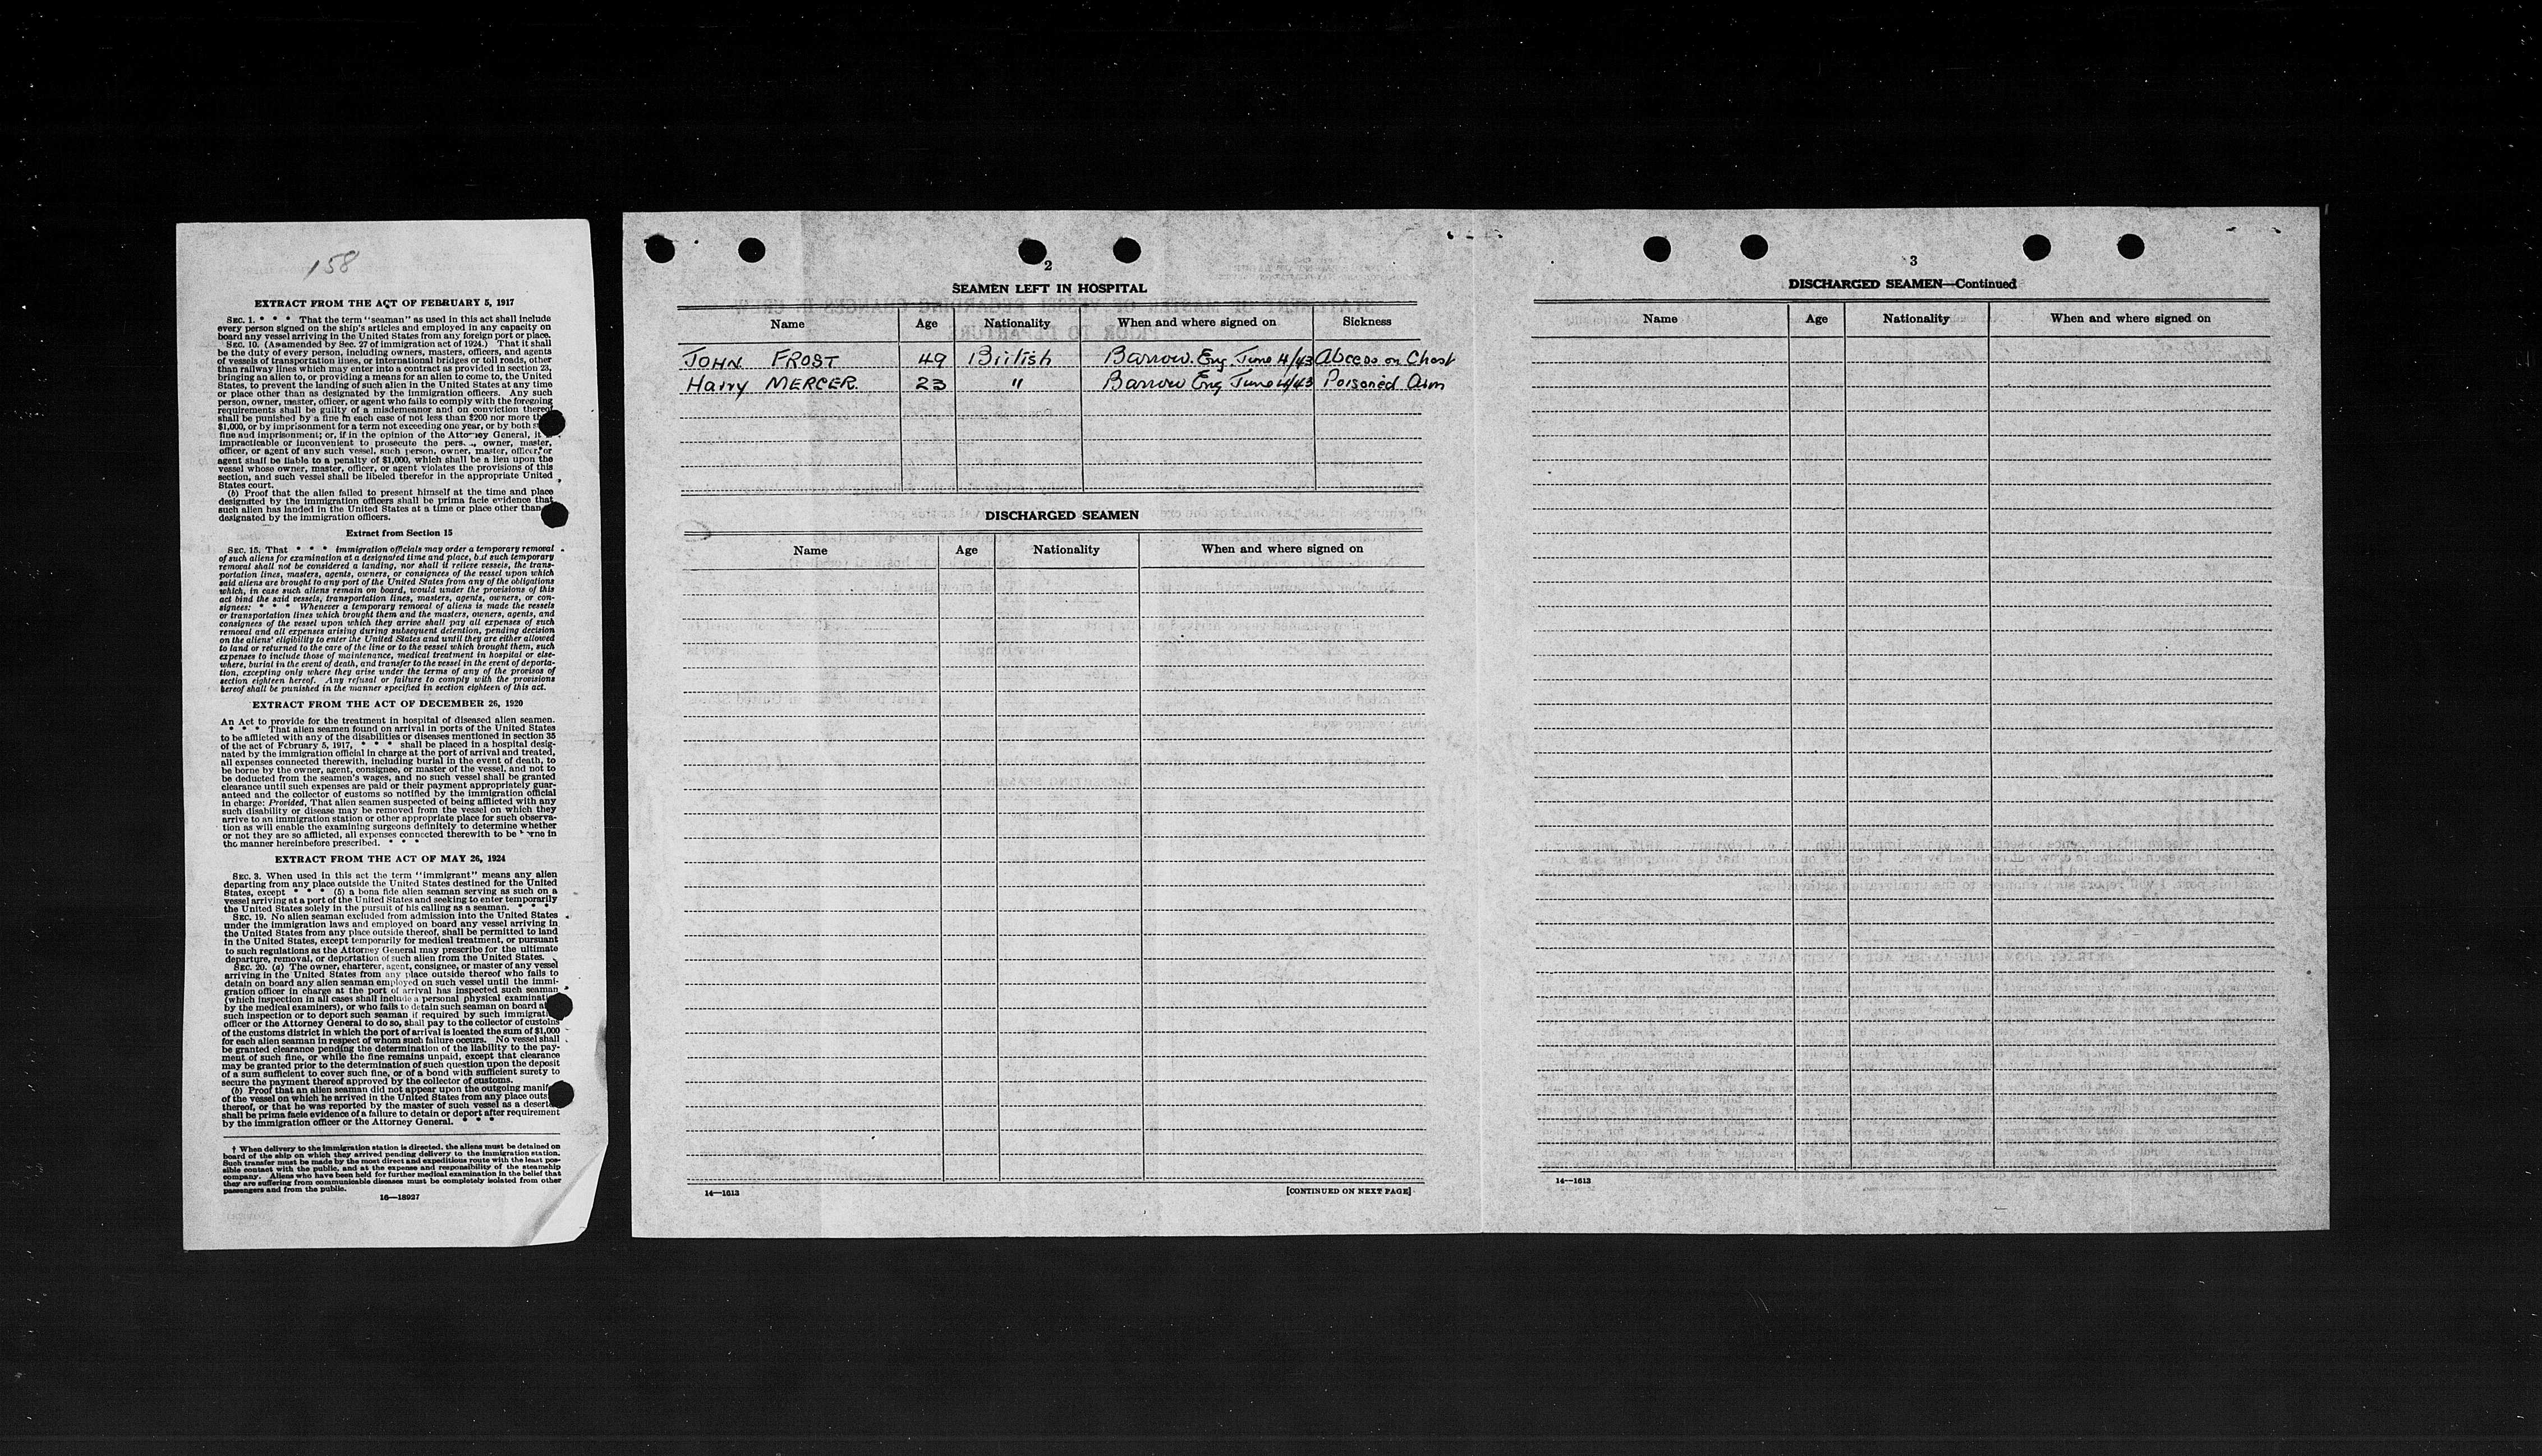 158
EXTRACT FROM THE ACT OF FEBRUARY 5, 1917
SEC. 1. * * * That the term "seaman" as used in this act shall include
every person signed on the ship's articles and employed in any capacity on
board any vessel arriving in the United States from any foreign port or place.
SEC. 10. (As amended by Sec. 27 of immigration act of 1924.) That it shall
be the duty of every person, including owners, masters, officers, and agents
of vessels of transportation lines, or international bridges or toll roads, other
than railway lines which may enter into a contract as provided in section 23,
bringing an alien to, or providing a means for an alien to come to, the United
States, to prevent the landing of such alien in the United States at any time
or place other than as designated by the immigration officers. Any such
person, owner, master, officer, or agent who fails to comply with the foregoing
requirements shall be guilty of a misdemeanor and on conviction thereof
shall be punished by a fine in each case of not less than $200 nor more
$1,000, or by imprisonment for a term not exceeding one year, or by both
fine and imprisonment; or, if in the opinion of the Attorney General, it
impracticable or inconvenient to prosecute the owner, master,
officer, or agent of any such vessel, such person, owner, master, officer, or
agent shall be liable to a penalty of $1,000, which shall be a lien upon the
vessel whose owner, master, officer, or agent violates the provisions of this
section, and such vessel shall be libeled therefor in the appropriate United
States court.
(b) Proof that the alien failed to present himself at the time and place
designated by the immigration officers shall be prima facie evidence that
such alien has landed in the United States at a time or place other than
designated by the immigration officers.
Extract from Section 15
SEC. 15. That * * * immigration officials may order a temporary removal
of such aliens for examination at a designated time and place, but such temporary
removal shall not be considered a landing, nor shall it relieve vessels, the trans-
portation lines, masters, agents, owners, or consignees of the vessel upon which
said aliens are brought to any port of the United States from any of the obligations
which, in case such aliens remain on board, would under the provisions of this
act bind the said vessels, transportation lines, masters, agents, owners, or con-
signees: * * * Whenever a temporary removal of aliens is made the vessels
or transportation lines which brought them and the masters, owners, agents, and
consignees of the vessel upon which they arrive shall pay all expenses of such
removal and all expenses arising during subsequent detention, pending decision
on the aliens' eligibility to enter the United States and until they are either allowed
to land or returned to the care of the line or to the vessel which brought them, such
expenses to include those of maintenance, medical treatment in hospital or else-
where, burial in the event of death, and transfer to the vessel in the event of deporta-
tion, excepting only where they arise under the terms of any of the provisos of
section eighteen hereof. Any refusal or failure to comply with the provisions
hereof shall be punished in the manner specified in section eighteen of this act.
EXTRACT FROM THE ACT OF DECEMBER 26, 1920
An Act to provide for the treatment in hospital of diseased alien seamen.
* * * That alien seamen found on arrival in ports of the United States
to be afflicted with any of the disabilities or diseases mentioned in section 35
of the act of February 5, 1917, * * * shall be placed in a hospital desig-
nated by the immigration official in charge at the port of arrival and treated,
all expenses connected therewith, including burial in the event of death, to
be borne by the owner, agent, consignee, or master of the vessel, and not to
be deducted from the seamen's wages, and no such vessel shall be granted
clearance until such expenses are paid or their payment appropriately guar-
anteed and the collector of customs so notified by the immigration official
in charge: Provided, That alien seamen suspected of being afflicted with any
such disability or disease may be removed from the vessel on which they
arrive to an immigration station or other appropriate place for such observa-
tion as will enable the examining surgeons definitely to determine whether
or not they are so afflicted, all expenses connected therewith to be in
the manner hereinbefore prescribed. * * *
EXTRACT FROM THE ACT OF MAY 26, 1924
SEC. 3. When used in this act the term "immigrant" means any alien
departing from any place outside the United States destined for the United
States, except * * * (5) a bona fide alien seaman serving as such on a
vessel arriving at a port of the United States and seeking to enter temporarily
the United States solely in the pursuit of his calling as a seaman. * * *
SEC. 19. No alien seaman excluded from admission into the United States
under the immigration laws and employed on board any vessel arriving in
the United States from any place outside thereof, shall be permitted to land
in the United States, except temporarily for medical treatment, or pursuant
to such regulations as the Attorney General may prescribe for the ultimate
departure, removal, or deportation of such alien from the United States.
SEC. 20. (a) The owner, charterer, agent, consignee, or master of any vessel
arriving in the United States from any place outside thereof who fails to
detain on board any alien seaman employed on such vessel until the immi-
gration officer in charge at the port of arrival has inspected such seaman
(which inspection in all cases shall include a personal physical
by the medical examiners), or who fails to detain such seaman on board
such inspection or to deport such seaman if required by such
officer or the Attorney General to do so, shall pay to the collector of customs
of the customs district in which the port of arrival is located the sum of $1,000
for each alien seaman in respect of whom such failure occurs. No vessel shall
be granted clearance pending the determination of the liability to the pay-
ment of such fine, or while the fine remains unpaid, except that clearance
may be granted prior to the determination of such question upon the deposit
of a sum sufficient to cover such fine, or of a bond with sufficient surety to
secure the payment thereof approved by the collector of customs.
(b) Proof that an alien seaman did not appear upon the outgoing
of the vessel on which he arrived in the United States from any place
thereof, or that he was reported by the master of such vessel as a
shall be prima facie evidence of a failure to detain or deport after requirement
by the immigration officer or the Attorney General. * * *
† When delivery to the immigration station is directed, the aliens must be detained on
board of the ship on which they arrived pending delivery to the immigration station.
Such transfer must be made by the most direct and expeditious route with the least pos-
sible contact with the public, and at the expense and responsibility of the steamship
company. Aliens who have been held for further medical examination in the belief that
they are suffering from communicable diseases must be completely isolated from other
passengers and from the public.
16—18927
2
SEAMEN LEFT IN HOSPITAL
Name Age Nationality When and where signed on Sickness
JOHN FROST 49 British Barrow. Eng. June 4/43 Abcess on Chest
Harry MERCER. 23 " Barrow Eng June 4/43 Poisoned Arm
DISCHARGED SEAMEN
Name Age Nationality When and where signed on
14—1613 [CONTINUED ON NEXT PAGE]
3
DISCHARGED SEAMEN—Continued
Name Age Nationality When and where signed on
14—1613